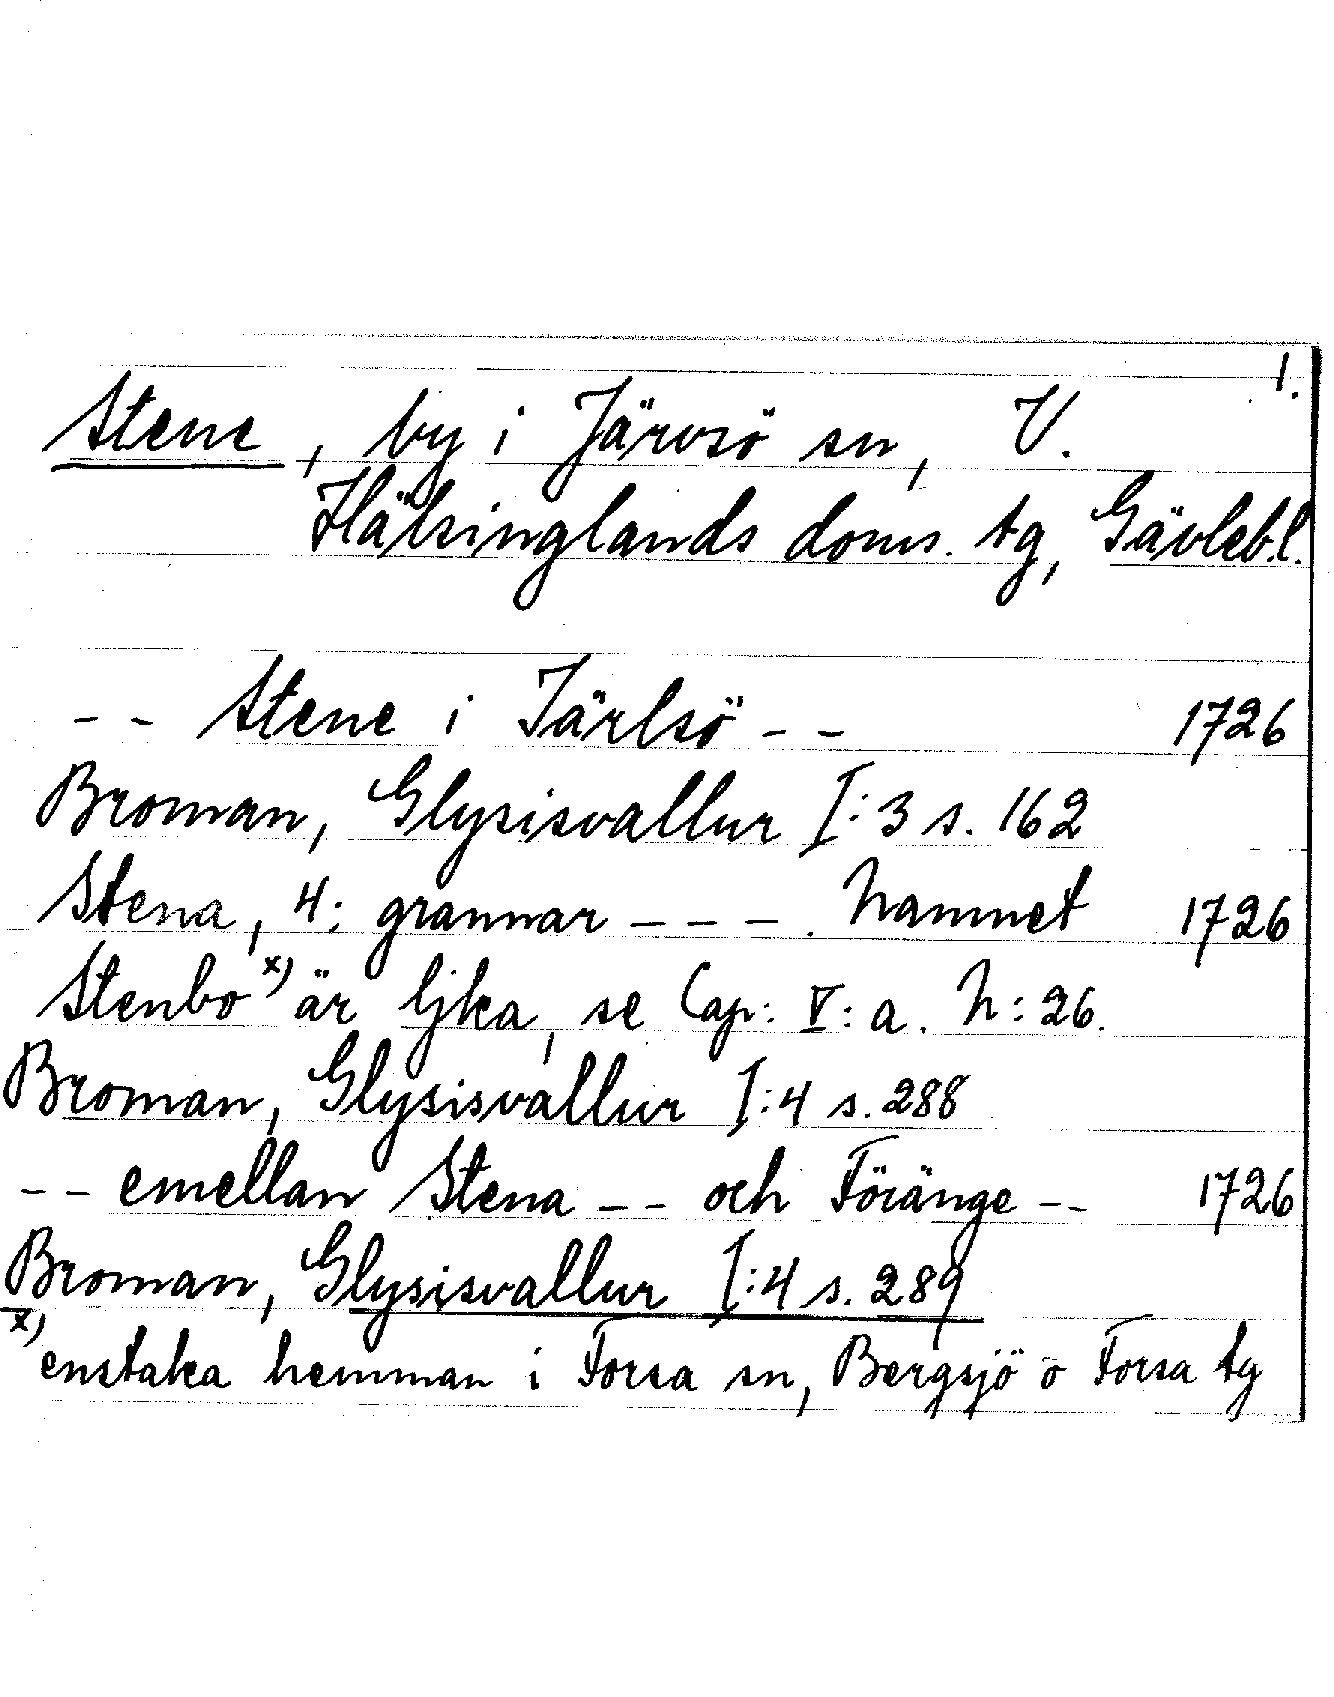 1.
Stene, by i Järvsö sn, V.
Hälsinglands doms. tg, Gävleb.l.
-- Stene i Järlsö -- 1726
Broman, Glysisvallur I:3 s. 162
Stena, 4: grannar --- . Namnet 1726
Stenbo x) är lijka, se Cap: V: a. N: 26.
Broman, Glysisvallur I:4 s. 288
-- emellan Stena -- och Föränge -- 1726
Broman, Glysisvallur I:4 s. 289
x) enstaka hemman i Forsa sn, Bergsjö o Forsa tg